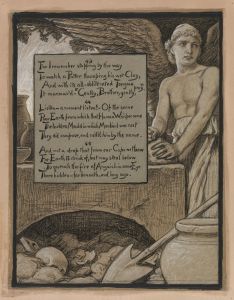 For I remember stopping by the way
To watch a Potter thumping his wet Clay,
And with its all-obliterated Tongue
It murmur'd—"Gently, Brother, gently, pray!"
44
Listen—a moment listen!—Of the same
Poor Earth from which that Human Whisper came
The luckless Mould in which Mankind was cast
They did compose, and call'd him by the name.
45
And not a drop that from our Cups we throw
For Earth to drink of, but may steal below
To quench the fire of Anguish in some Eye
There hidden—far beneath, and long ago.